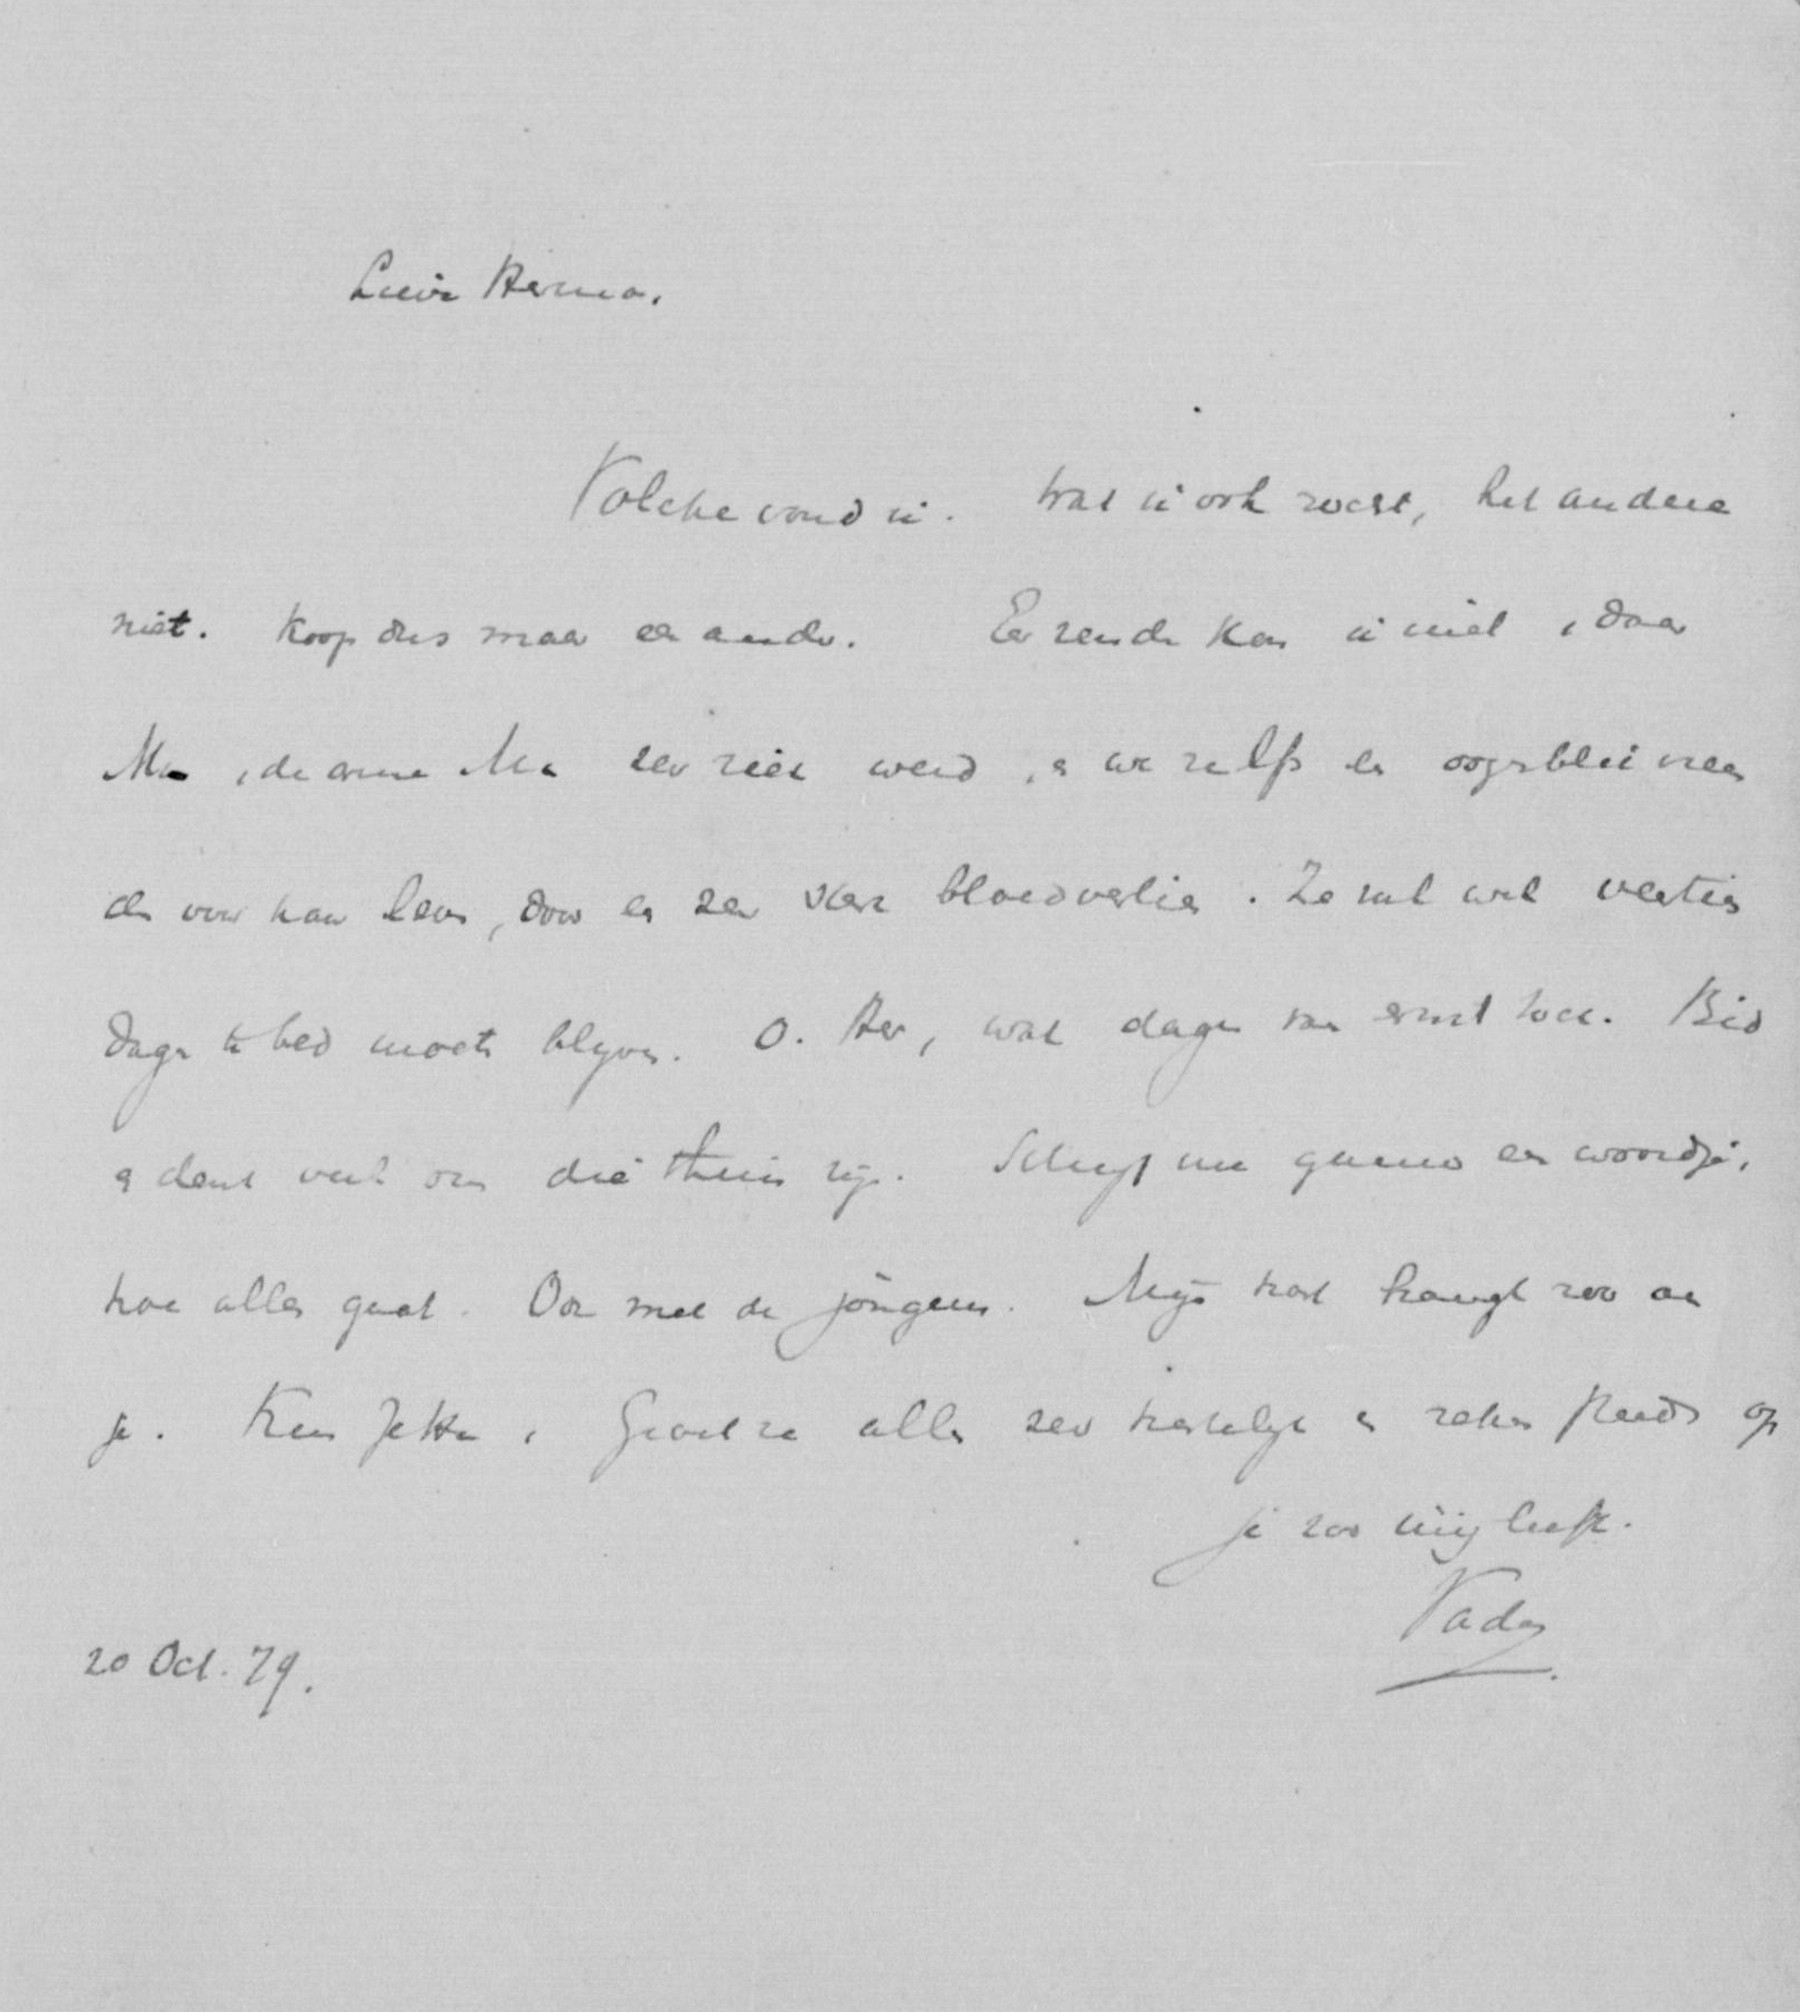 Lieve Herma.
vond ik. Wat ik ook zocht, het andere
niet. Koop dus maar een ander. Er zenden kon ik niet, daar
Ma, de arme Ma zeer ziek werd, en we zelfs een oogenblik vrees
den voor haar leven, door een zeer sterk bloedverlies. Ze zal wel veertien
dagen te bed moeten blijven. O. Her, wat dagen van ernst toch. Bid
en denk veel om die thuis zijn. Schrijf me gauw een woordje,
hoe alles gaat. Ook met de jongens. Mijn hart hangt zoo aan
je. Kus Jettha, Groet ze allen zeer hartelijk en reken steeds op
je zoo innig liefh.
Vader
20 Oct. 79.